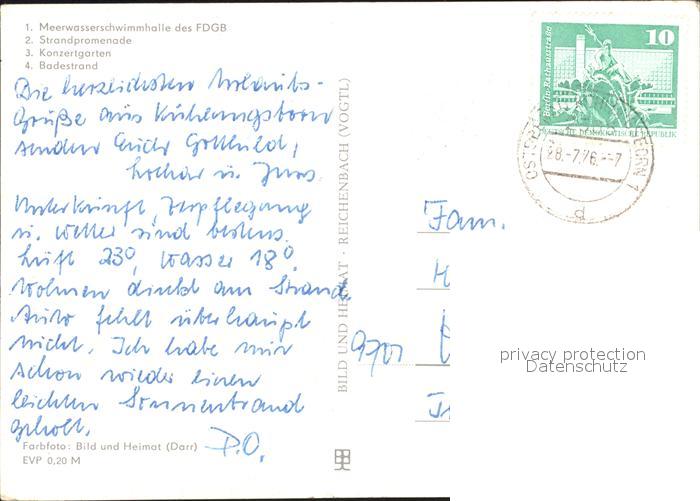 1. Meerwasserschwimmhalle des FDGB
2. Strandpromenade
3. Konzertgarten
4. Badestrand
Die herzlichsten Urlaubs-
Grüße aus Kühlungsborn
senden Euch Gotthild,
Lothar u. Jens.
Unterkunft, Verpflegung
u. Wetter sind bestens.
Luft 23°, Wasser 18°.
Wohnen direkt am Strand
Auto fehlt überhaupt
nicht. Ich habe mir
schon wieder einen
leichten Sonnenbrand
geholt.
P.O.
Farbfoto: Bild und Heimat (Darr)
EVP 0,20 M
BILD UND HEIMAT · REICHENBACH (VOGTL)
10
Berlin, Rathausstraße
DEUTSCHE DEMOKRATISCHE REPUBLIK
28.-7.76.--7
Fam.
H
9701
privacy protection
Datenschutz